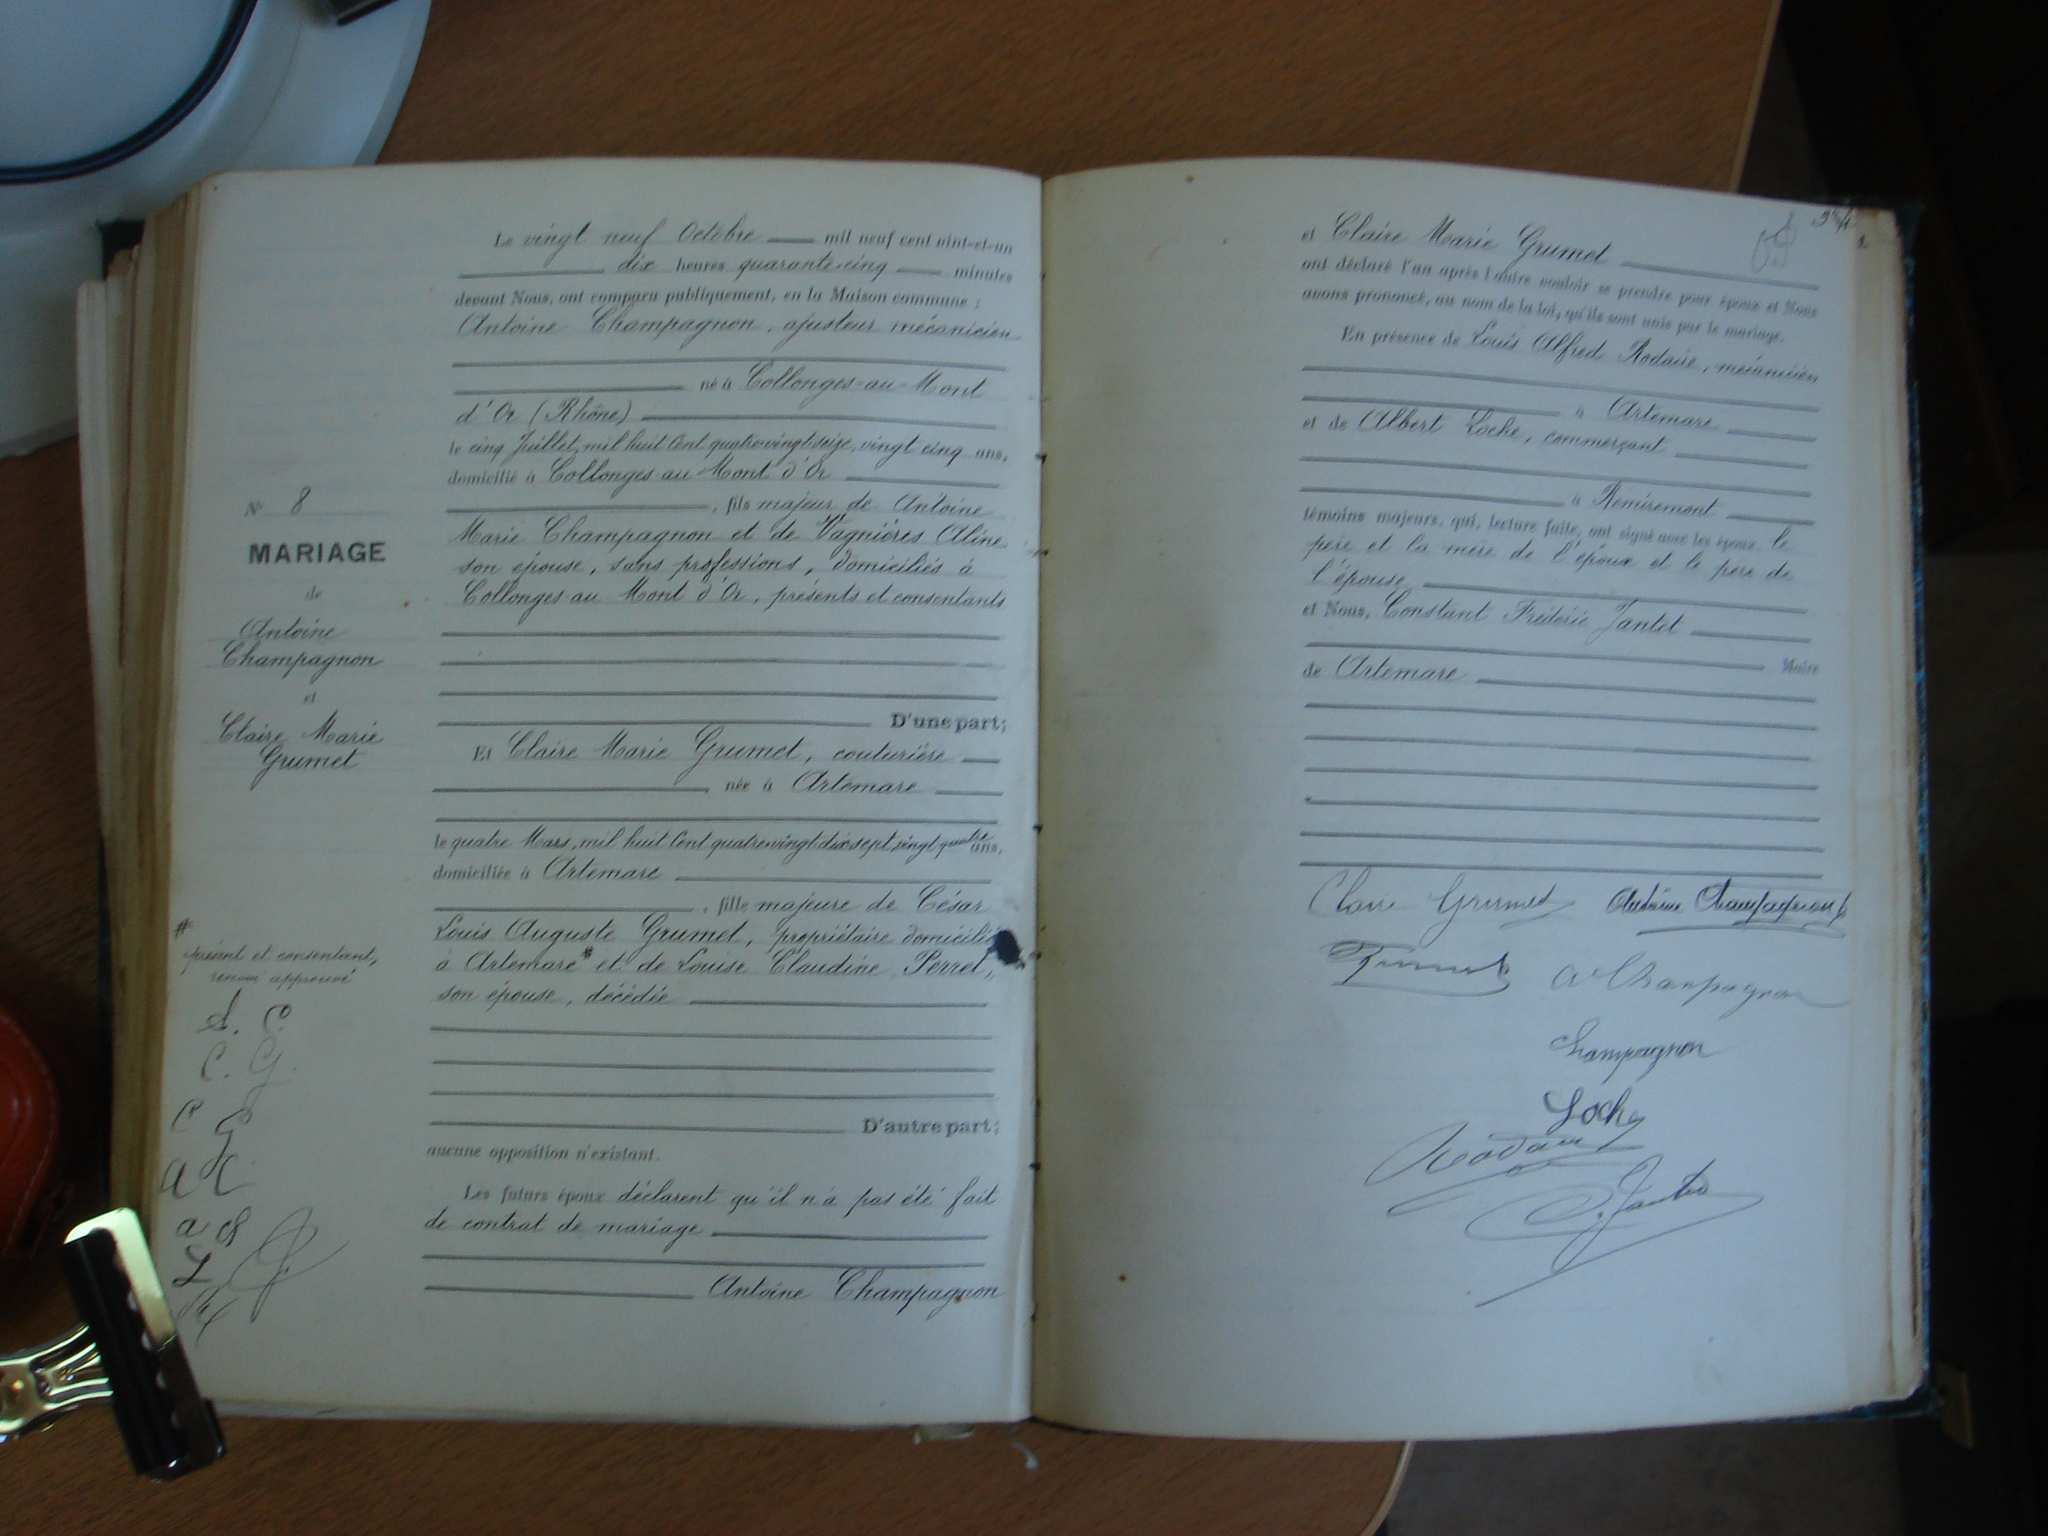 Le vingt neuf Octobre mil neuf cent vint-et-un
dix heures quarante-cinq minutes
devant Nous, ont comparu publiquement, en la Maison commune :
Antoine Champagnon, ajusteur mécanicien
né à Collonges-au-Mont
d'Or (Rhône)
le cinq Juillet, mil huit Cent quatrevingt seize, vingt cinq ans,
domicilié à Collonges-au-Mont d'Or
, fils majeur de Antoine
Marie Champagnon et de Vagnières Aline
son épouse, sans professions, domiciliés à
Collonges au Mont d'Or, présents et consentants
D'une part;
Et Claire Marie Grumet, couturière
, née à Artemare
le quatre Mars, mil huit Cent quatrevingt dix sept, vingt quatre ans,
domiciliée à Artemare
, fille majeure de César
Louis Auguste Grumet, propriétaire domicilié
à Artemare # et de Louise Claudine Perret,
son épouse, décédée
D'autre part;
aucune opposition n'existant.
Les futurs époux déclarent qu'il n'a pas été fait
de contrat de mariage
Antoine Champagnon
N° 8
MARIAGE
de
Antoine
Champagnon
et
Claire Marie
Grumet
#
présent et consentant,
renvoi approuvé
A. C.
C. G.
C G
A C
a ch
L
et Claire Marie Grumet
ont déclaré l'un après l'autre vouloir se prendre pour époux et Nous
avons prononcé, au nom de la loi, qu'ils sont unis par le mariage.
En présence de Louis Alfred Rodaire, mécanicien
à Artemare
et de Albert Loche, commerçant
à Remiremont
témoins majeurs, qui, lecture faite, ont signé avec les époux le
père et la mère de l'époux et le père de
l'épouse
et Nous, Constant Frédéric Jantet
Maire
de Artemare
Claire Grumet Antoine Champagnon
Grumet A Champagnon
Champagnon
Loche
Rodaire
C. Jantet